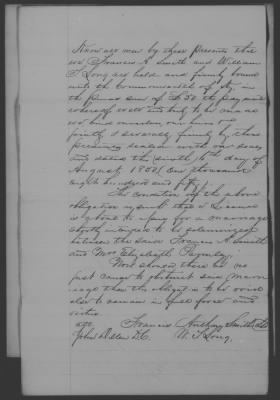 Know all men by these presents that
we Francis A. Smith and William
T. Long are held and firmly bound
unto the Commonwealth of Ky, in
the penal sum of $50 the payment
whereof well and truly to be made
we bind ourselves, our heirs &c
jointly & severally firmly by these
presents, sealed with our seals
and dated this 6th day of
August, 1850 (one thousand
eight hundred and fifty)
The condition of the above
obligation is such that a License
is about to issue for a marriage
shortly intended to be solemnized
between the said Francis A. Smith
and Miss Elizabeth
Now should there be no
just cause to obstruct said Marri
age then this obligation to be void
else to remain in full force and
virtue
att Francis Anthony Smith
John Allen D.C. W. T. Long